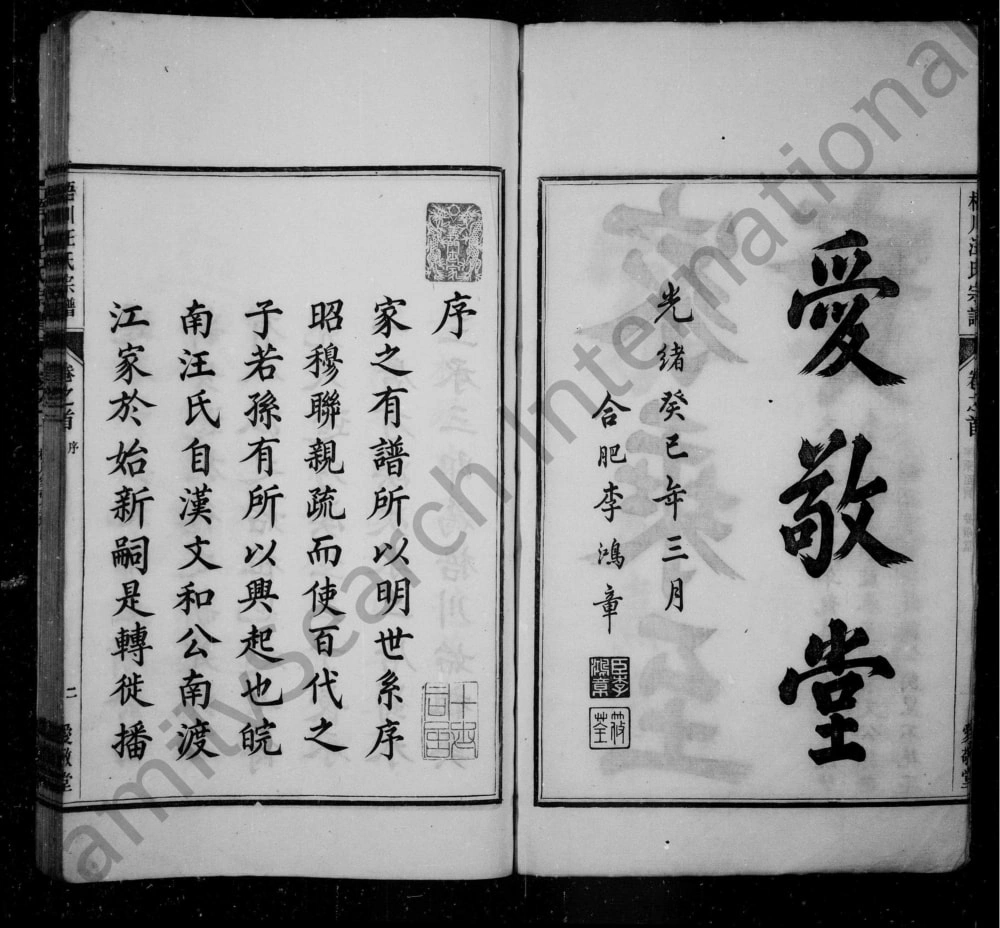 愛敬堂
光緒癸巳年三月
合肥李鴻章
臣李鴻章
梧川汪氏宗譜
卷之首
愛敬堂
序
家之有譜所以明世系序
昭穆聯親疏而使百代之
子若孫有所以興起也皖
南汪氏自漢文和公南渡
江家於始新嗣是轉徙播
梧川汪氏宗譜
卷之首 序
二
愛敬堂
FamilySearch International